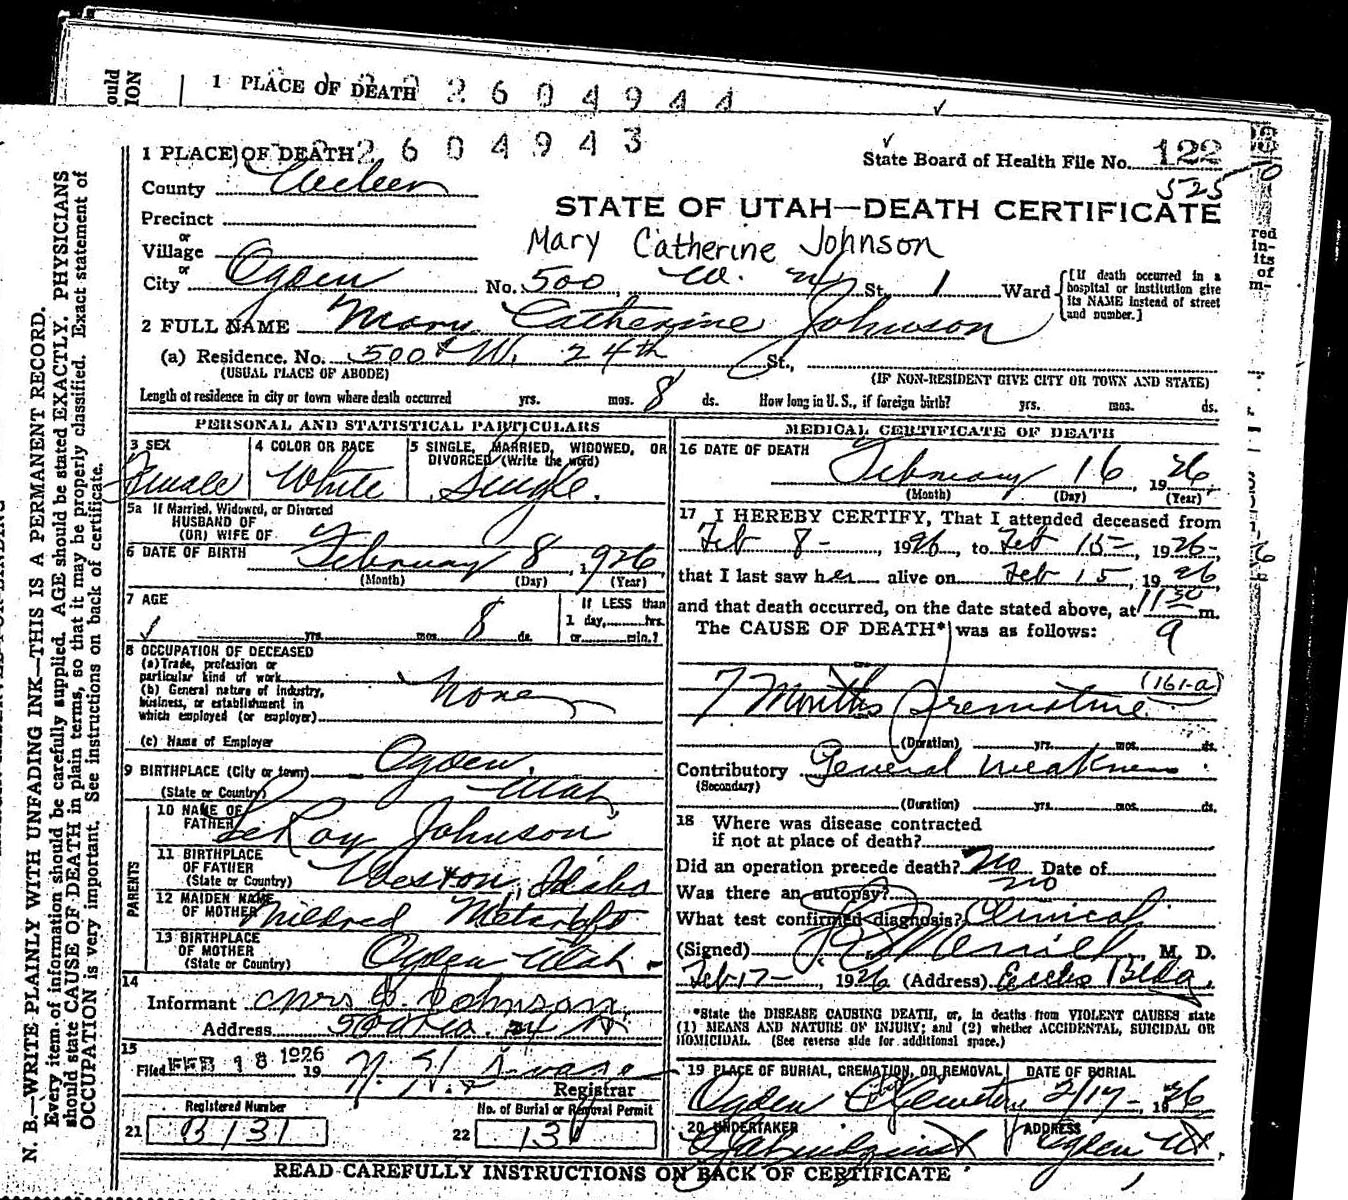 ould
ION
1 PLACE OF DEATH 2 6 0 4 9 4 4
1 PLACE OF DEATH 2 6 0 4 9 4 3
State Board of Health File No. 122
525
0
County
STATE OF UTAH—DEATH CERTIFICATE
Precinct
or
Village
Mary Catherine Johnson
or
City Ogden No. 500 W. 24 St. 1 Ward
[If death occurred in a hospital or institution give its NAME instead of street and number.]
2 FULL NAME Mary Catherine Johnson
(a) Residence. No. 500 W. 24th St.,
(USUAL PLACE OF ABODE) (IF NON-RESIDENT GIVE CITY OR TOWN AND STATE)
Length of residence in city or town where death occurred yrs. mos. 8 ds. How long in U. S., if foreign birth? yrs. mos. ds.
PERSONAL AND STATISTICAL PARTICULARS
3 SEX 4 COLOR OR RACE 5 SINGLE, MARRIED, WIDOWED, OR DIVORCED (Write the word)
Female White Single.
5a If Married, Widowed, or Divorced
HUSBAND OF
(OR) WIFE OF
6 DATE OF BIRTH February 8, 1926
(Month) (Day) (Year)
7 AGE yrs. mos. 8 ds.
If LESS than
1 day, hrs.
or min.?
8 OCCUPATION OF DECEASED
(a) Trade, profession or
particular kind of work
(b) General nature of industry,
business, or establishment in
which employed (or employer)
none
(c) Name of Employer
9 BIRTHPLACE (City or town) Ogden,
(State or Country) Utah
PARENTS
10 NAME OF
FATHER LeRoy Johnson
11 BIRTHPLACE
OF FATHER
(State or Country) Weston, Idaho
12 MAIDEN NAME
OF MOTHER Mildred Metcalf
13 BIRTHPLACE
OF MOTHER
(State or Country) Ogden Utah
14
Informant Mrs J. Johnson
Address 500 W. 24 St
15
Filed FEB 18 1926 19
Registrar
Registered Number No. of Burial or Removal Permit
21 B131 22
MEDICAL CERTIFICATE OF DEATH
16 DATE OF DEATH February 16, 1926
(Month) (Day) (Year)
17 I HEREBY CERTIFY, That I attended deceased from
Feb 8-, 1926, to Feb 15-, 1926-,
that I last saw her alive on Feb 15, 1926,
and that death occurred, on the date stated above, at 11 30 m.
The CAUSE OF DEATH* was as follows: a
(161-a)
7 Months Premature
(Duration) yrs. mos. ds.
Contributory General weakness
(Secondary)
(Duration) yrs. mos. ds.
18 Where was disease contracted
if not at place of death?
Did an operation precede death? no Date of
Was there an autopsy? no
What test confirmed diagnosis? Clinical
(Signed) Merrill, M. D.
Feb 17-, 1926 (Address) Eccles Bldg.
*State the DISEASE CAUSING DEATH, or, in deaths from VIOLENT CAUSES state
(1) MEANS AND NATURE OF INJURY; and (2) whether ACCIDENTAL, SUICIDAL OR
HOMICIDAL. (See reverse side for additional space.)
19 PLACE OF BURIAL, CREMATION, OR REMOVAL DATE OF BURIAL
Ogden City Cemetery 2/17-, 1926
20 UNDERTAKER ADDRESS
Ogden Ut.
READ CAREFULLY INSTRUCTIONS ON BACK OF CERTIFICATE
N. B.—WRITE PLAINLY WITH UNFADING INK—THIS IS A PERMANENT RECORD.
Every item of information should be carefully supplied. AGE should be stated EXACTLY. PHYSICIANS
should state CAUSE OF DEATH in plain terms, so that it may be properly classified. Exact statement of
OCCUPATION is very important. See instructions on back of certificate.